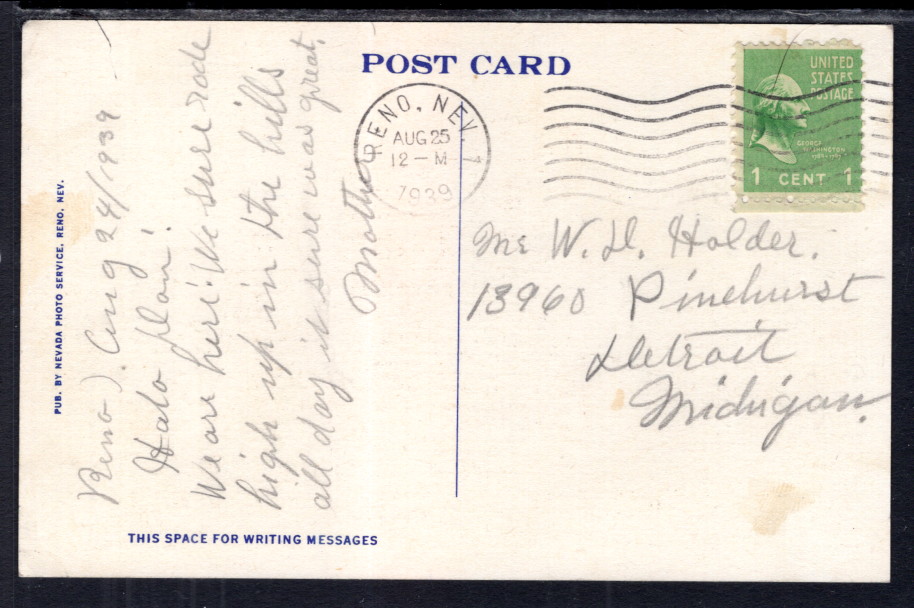 POST CARD
RENO, NEV
AUG 25
12 - M
1939
UNITED
STATES
POSTAGE
GEORGE
WASHINGTON
1 CENT 1
Reno). Aug 24/1939 -
Halo
We are here. We sure rode
high up in the hills
all day it sure was great,
Mother
Mr W. D. Holder.
13960 Pinehurst
Detroit
Michigan.
PUB. BY NEVADA PHOTO SERVICE, RENO, NEV.
THIS SPACE FOR WRITING MESSAGES